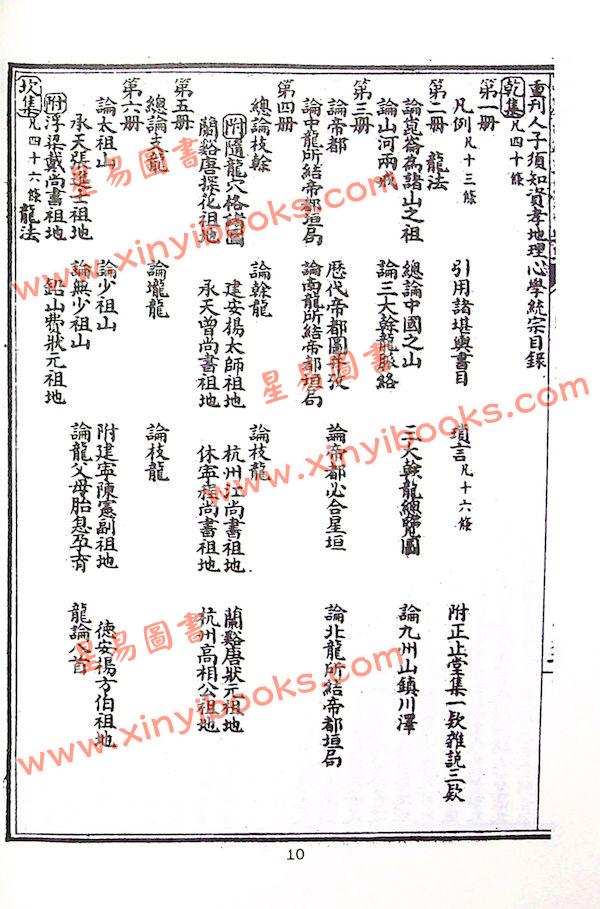 重刋人子須知資孝地理心學統宗目錄
乾集凡四十條
第一册
凡例凡十三條 引用諸堪輿書目 瑣言凡十六條 附正止堂集一欵雜說三欵
第二册 龍法
論崑崙為諸山之祖 總論中國之山 三大幹龍總覽圖 論九州山鎮川澤
論山河兩戒 論三大幹龍脉絡
第三册
論帝都 歷代帝都圖 論帝都必合星垣 論北龍所結帝都垣局
論中龍所結帝都垣局 論南龍所結帝都垣局
第四册
總論枝幹 論幹龍 論枝龍
附隨龍穴格諸圖 建安楊太師祖地 杭州江尚書祖地 蘭谿唐狀元祖地
蘭谿唐探花祖地 承天曾尚書祖地 休寧程尚書祖地 杭州高相公祖地
第五册
總論支龍 論壠龍 論枝龍
第六册
論太祖山 論少祖山 附建寧陳憲副祖地 德安楊方伯祖地
承天張進士祖地 論無少祖山 論龍父母胎息孕育 龍論八首
附浮梁戴尚書祖地 鉛山費狀元祖地
坎集凡四十六條 龍法
10
星易圖書
www.xinyibooks.com
星易圖書
www.xinyibooks.com
星易圖書
www.xinyibooks.com